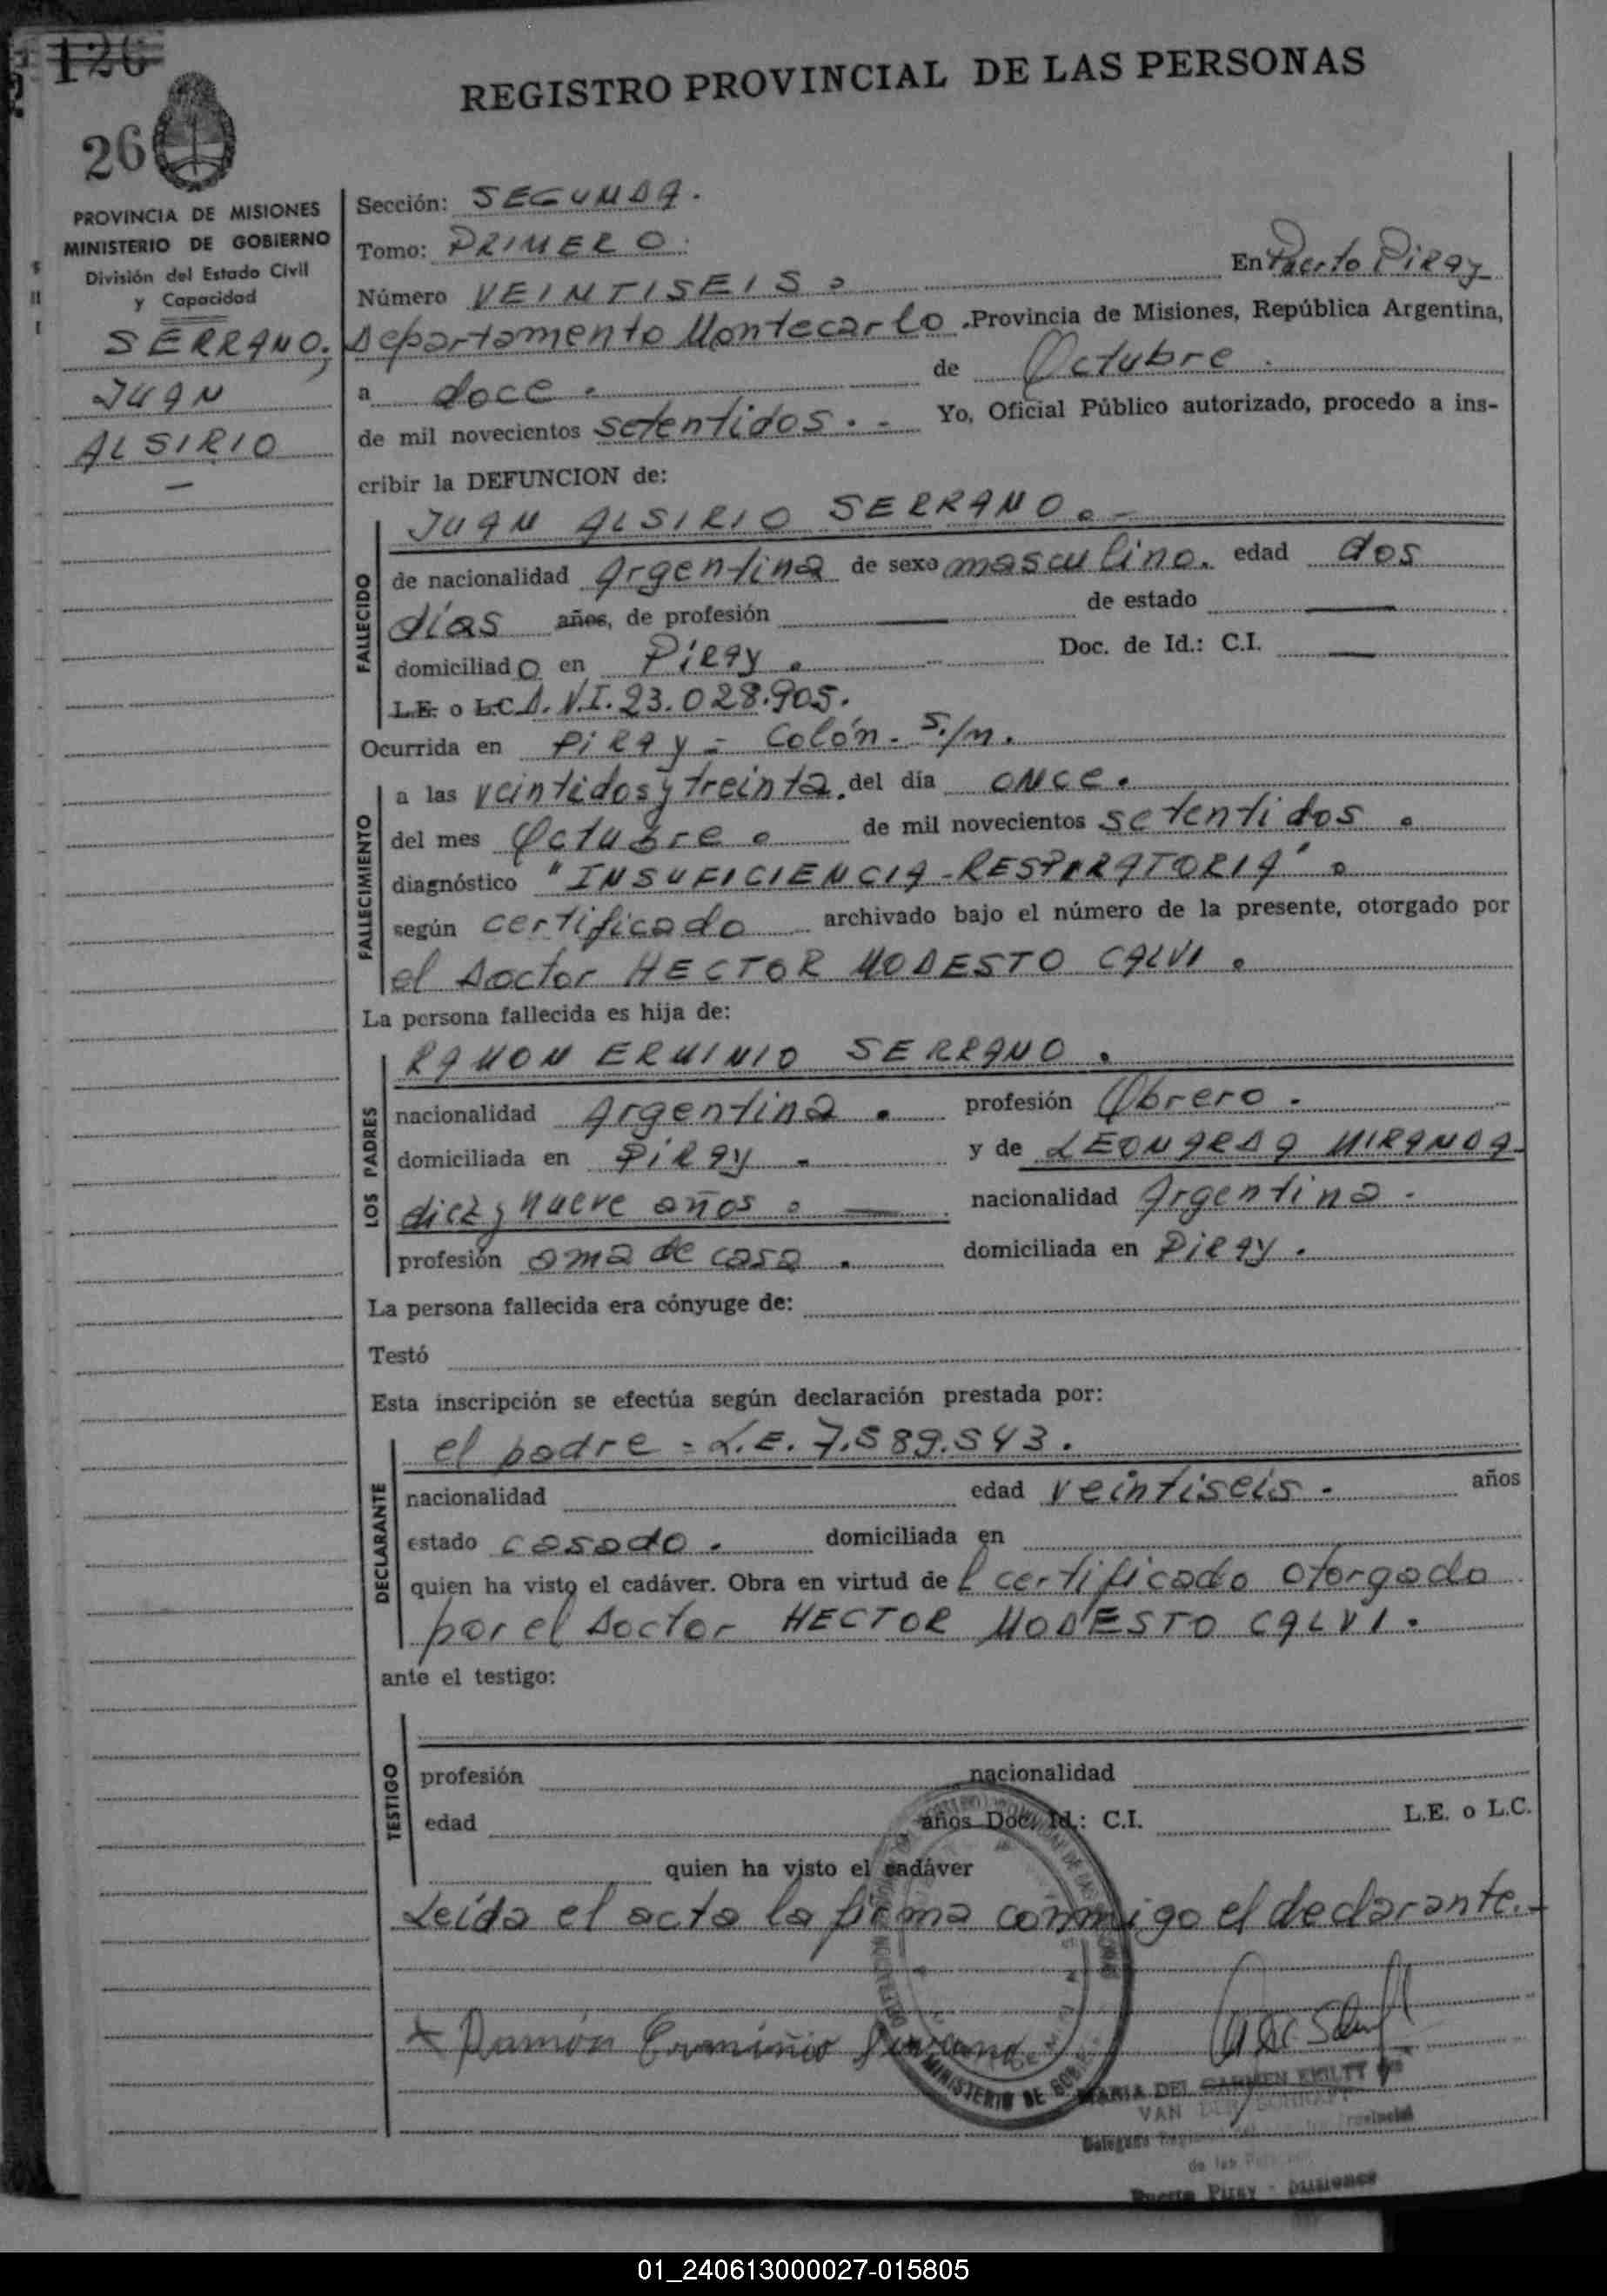 126
REGISTRO PROVINCIAL DE LAS PERSONAS
26
PROVINCIA DE MISIONES
MINISTERIO DE GOBIERNO
División del Estado Civil
y Capacidad
SERRANO,
JUAN
ALSIRIO
Sección: SEGUNDA.
Tomo: PRIMERO.
Número VEINTISEIS. En Puerto Piray
Departamento Montecarlo. Provincia de Misiones, República Argentina,
a doce. de Octubre.
de mil novecientos setentidos.- Yo, Oficial Público autorizado, procedo a ins-
cribir la DEFUNCION de:
JUAN ALSIRIO SERRANO.-
FALLECIDO
de nacionalidad Argentina de sexo masculino. edad dos
días años, de profesión — de estado —
domiciliado en Piray. Doc. de Id.: C.I. —
L.E. o L.C. D.N.I. 23.028.905.
Ocurrida en Piray - Colón - S/n.
FALLECIMIENTO
a las veintidos y treinta. del día once.
del mes Octubre. de mil novecientos setentidos.
diagnóstico "INSUFICIENCIA-RESPIRATORIA".
según certificado archivado bajo el número de la presente, otorgado por
el Doctor HECTOR MODESTO CALVI.
La persona fallecida es hija de:
LOS PADRES
RAMON ERMINIO SERRANO.
nacionalidad Argentina. profesión Obrero.
domiciliada en Piray - y de LEONARDA MIRANDA.
diez y nueve años. — nacionalidad Argentina.
profesión ama de casa. domiciliada en Piray.
La persona fallecida era cónyuge de:
Testó
Esta inscripción se efectúa según declaración prestada por:
DECLARANTE
el padre - L.E. 7.589.543.
nacionalidad edad veintiseis. años
estado casado. domiciliada en
quien ha visto el cadáver. Obra en virtud del certificado otorgado
por el Doctor HECTOR MODESTO CALVI.
ante el testigo:
TESTIGO
profesión nacionalidad
edad años Doc. Id.: C.I. L.E. o L.C.
quien ha visto el cadáver
Leída el acta la firma conmigo el declarante.-
x Ramón Erminio Serrano
MINISTERIO DE GOB
MARIA DEL CARMEN
VAN DER
de las
Puerto Piray - Misiones
01_240613000027-015805